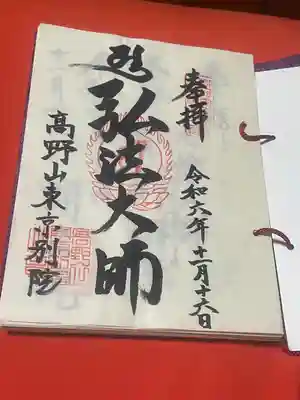 奉拝
令和六年十一月十六日
弘法大師
高野山東京別院